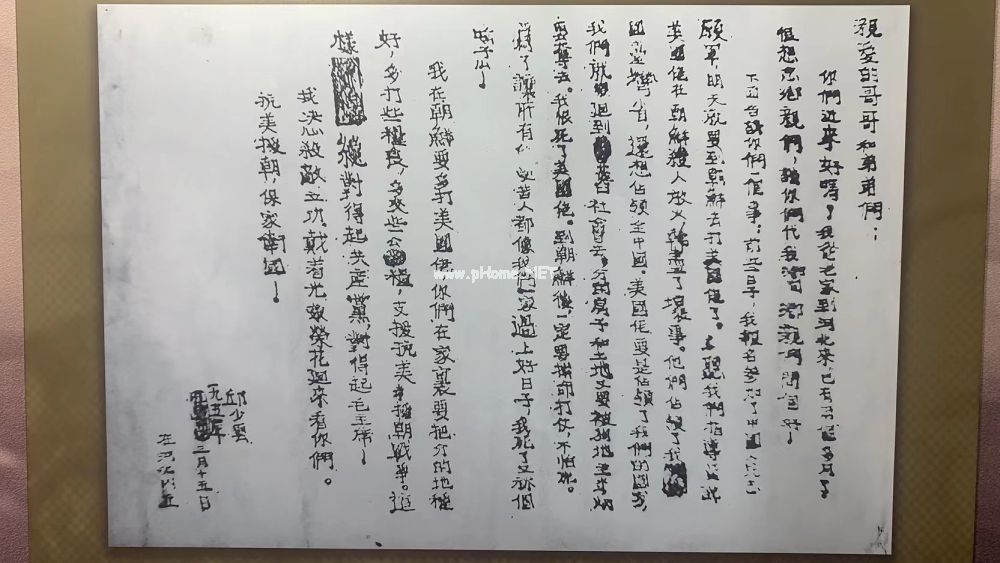 親愛的哥哥和弟弟們：
你們近來好嗎？我從老家到河北來，已有多月了
但想念鄉親們，請你們代我向鄉親們問個好！
下面告訴你們一個事：前些日子，我報名參加了中國人民志
願軍，明天就要到朝鮮去打美國佬了。聽我們指導員說
美國佬在朝鮮殺人放火幹盡了壞事。他們佔領了我
國臺灣省，還想佔領全中國。美國佬要是佔領了我們的國家，
我們就要退到舊社會去，分的房子和土地又要被狗地主
奪去。我恨死了美國佬。到朝鮮後，一定要拚命打仗，不怕死。
為了讓所有受苦人都像我們一家過上好日子，我死了又算個
啥子么！
我在朝鮮要多打美國佬，你們在家裏要把分的地種
好，多打些糧食，多交些公糧，支援抗美援朝戰爭。這
樣纔對得起共產黨，對得起毛主席！
我決心殺敵立功，戴着光榮花迴來看你們。
抗美援朝，保家衛國！
邱少雲
一九五一年
三月十五日
在河北
www.pHome.NET